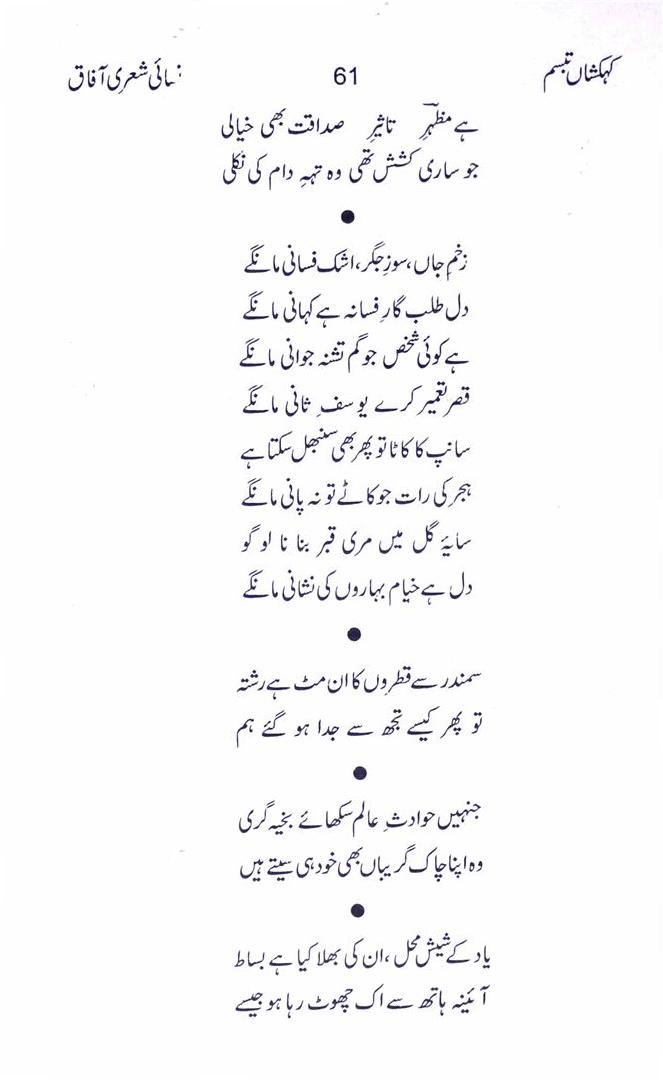 کہکشاں تبسم 61 نسائی شعری آفاق
ہے مظہرِ تاثیرِ صداقت بھی خیالی
جو ساری کشش تھی وہ تہہِ دام کی نکلی
●
زخمِ جاں، سوزِ جگر، اشک فسانی مانگے
دل طلب گارِ فسانہ ہے کہانی مانگے
ہے کوئی شخص جو گم تشنہ جوانی مانگے
قصر تعمیر کرے یوسفِ ثانی مانگے
سانپ کا کاٹا تو پھر بھی سنبھل سکتا ہے
ہجر کی رات جو کاٹے تو نہ پانی مانگے
سایۂ گل میں مری قبر بنا نا لو گو
دل ہے خیام بہاروں کی نشانی مانگے
●
سمندر سے قطروں کا ان مٹ ہے رشتہ
تو پھر کیسے تجھ سے جدا ہو گئے ہم
●
جنہیں حوادثِ عالم سکھائے بخیہ گری
وہ اپنا چاک گریباں بھی خود ہی سیتے ہیں
●
یاد کے شیش محل، ان کی بھلا کیا ہے بساط
آئینہ ہاتھ سے اک چھوٹ رہا ہو جیسے